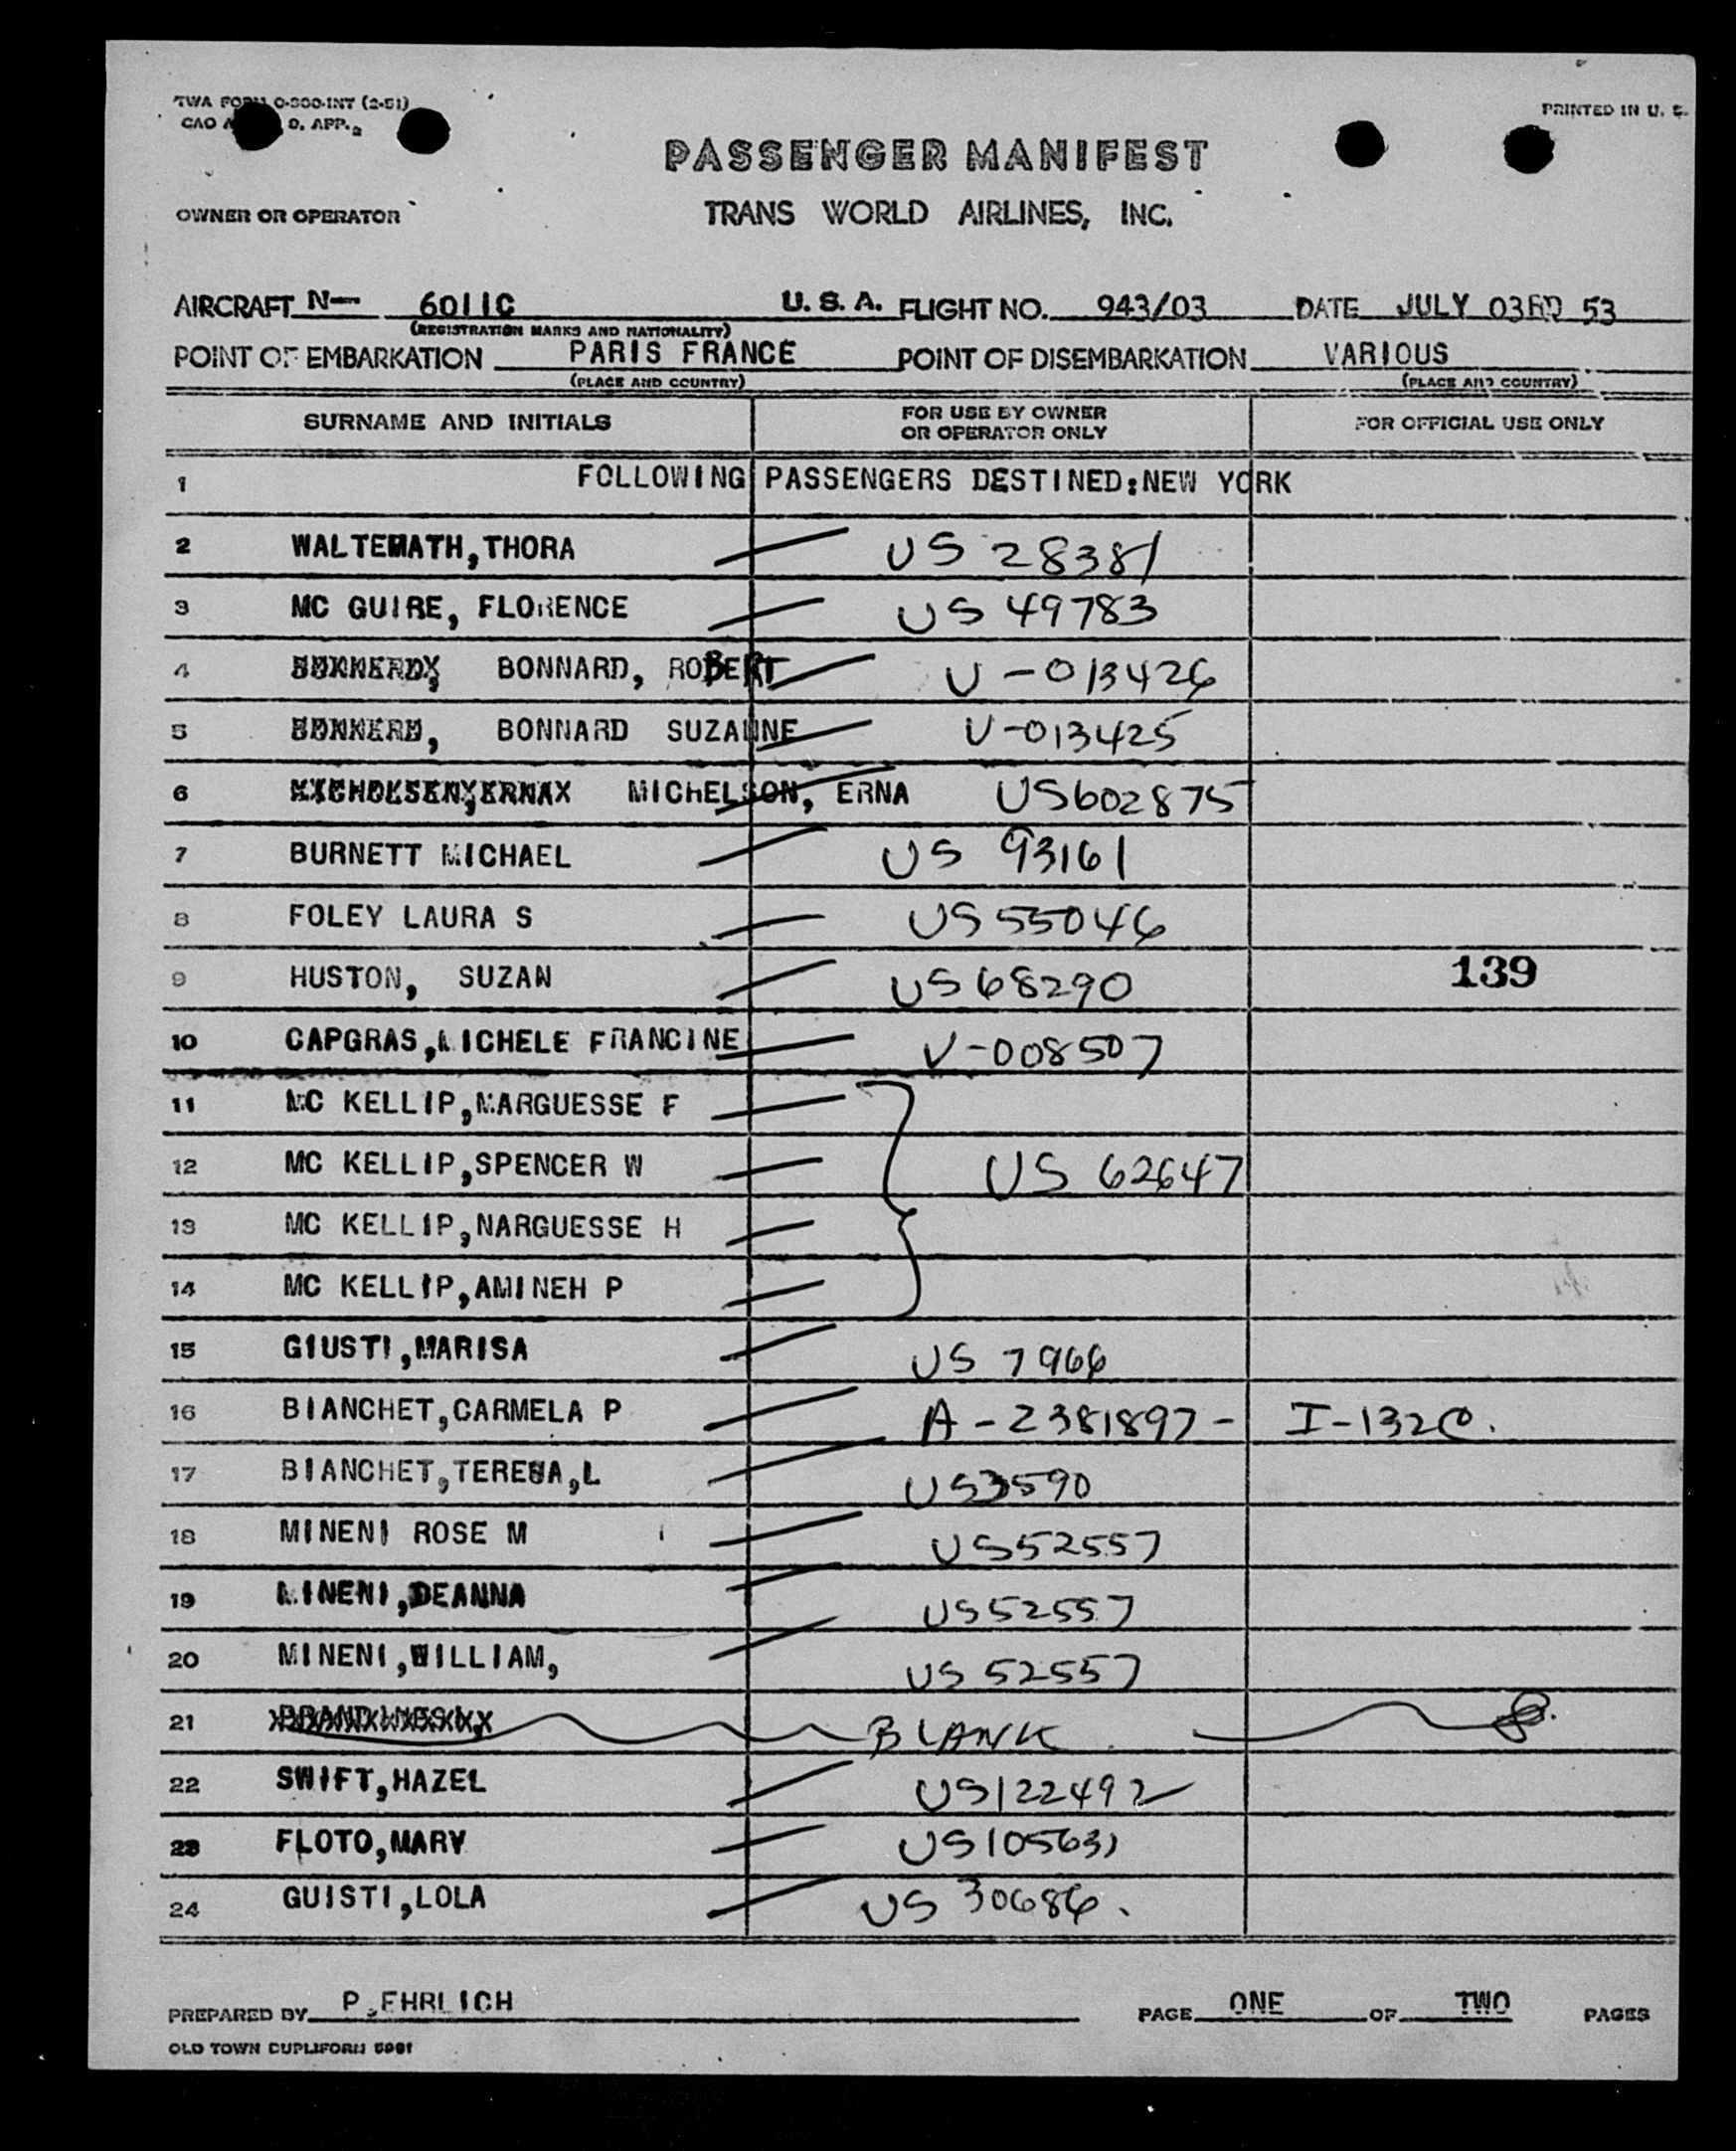 TWA FORM O-300-INT (2-51)
PRINTED IN U. S.
CAO D. APP. 2
PASSENGER MANIFEST
OWNER OR OPERATOR
TRANS WORLD AIRLINES, INC.
AIRCRAFT N— 6011C U. S. A. FLIGHT NO. 943/03 DATE JULY 03RD 53
(REGISTRATION MARKS AND NATIONALITY)
POINT OF EMBARKATION PARIS FRANCE POINT OF DISEMBARKATION VARIOUS
(PLACE AND COUNTRY) (PLACE AND COUNTRY)
SURNAME AND INITIALS FOR USE BY OWNER OR OPERATOR ONLY FOR OFFICIAL USE ONLY
1 FOLLOWING PASSENGERS DESTINED:NEW YORK
2 WALTEMATH,THORA US 28381
3 MC GUIRE, FLORENCE US 49783
4 BONNARD, ROBERT V-013426
5 BONNARD SUZANNE V-013425
6 MICHELSON, ERNA US602875
7 BURNETT MICHAEL US 93161
8 FOLEY LAURA S US 55046
9 HUSTON, SUZAN US 68290 139
10 CAPGRAS,MICHELE FRANCINE V-008507
11 MC KELLIP,MARGUESSE F
12 MC KELLIP,SPENCER W US 62647
13 MC KELLIP,NARGUESSE H
14 MC KELLIP,AMINEH P
15 GIUSTI,MARISA US 7966
16 BIANCHET,CARMELA P A-2381897- I-132C.
17 BIANCHET,TERESA,L US3590
18 MINENI ROSE M US52557
19 MINENI,DEANNA US52557
20 MINENI,WILLIAM, US 52557
21 BLANK
22 SWIFT,HAZEL US122492
23 FLOTO,MARY US105631
24 GUISTI,LOLA US 30686.
PREPARED BY P.EHRLICH PAGE ONE OF TWO PAGES
OLD TOWN DUPLIFORM 5901